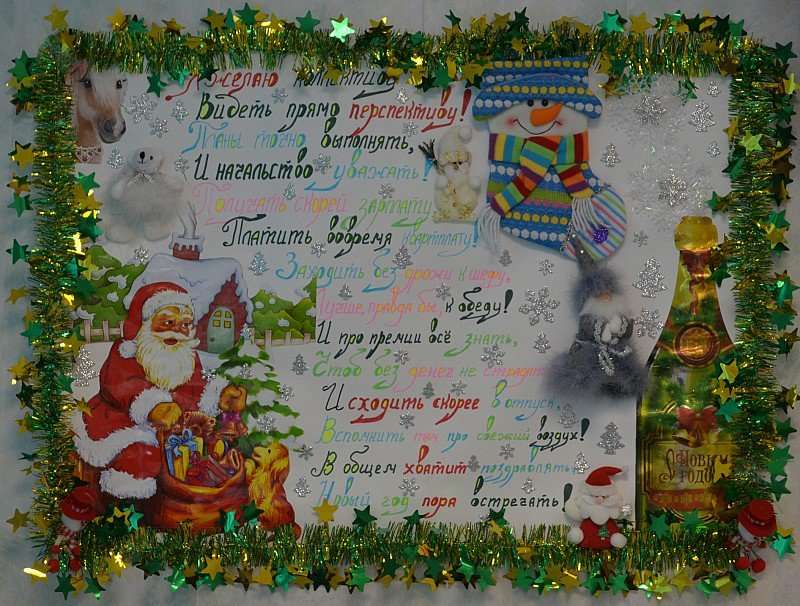 Желаю коллективу
Видеть прямо перспективу!
Планы точно выполнять,
И начальство уважать!
Получать скорей зарплату
Платить вовремя квартплату!
Заходить без дрожи к шефу,
Лучше, правда бы, к обеду!
И про премии всё знать,
Чтоб без денег не страдать
Исходить скорее в отпуск,
Вспомнить там про свежий воздух!
В общем хватит поздравлять,
Новый год пора встречать!
С Новым
годом